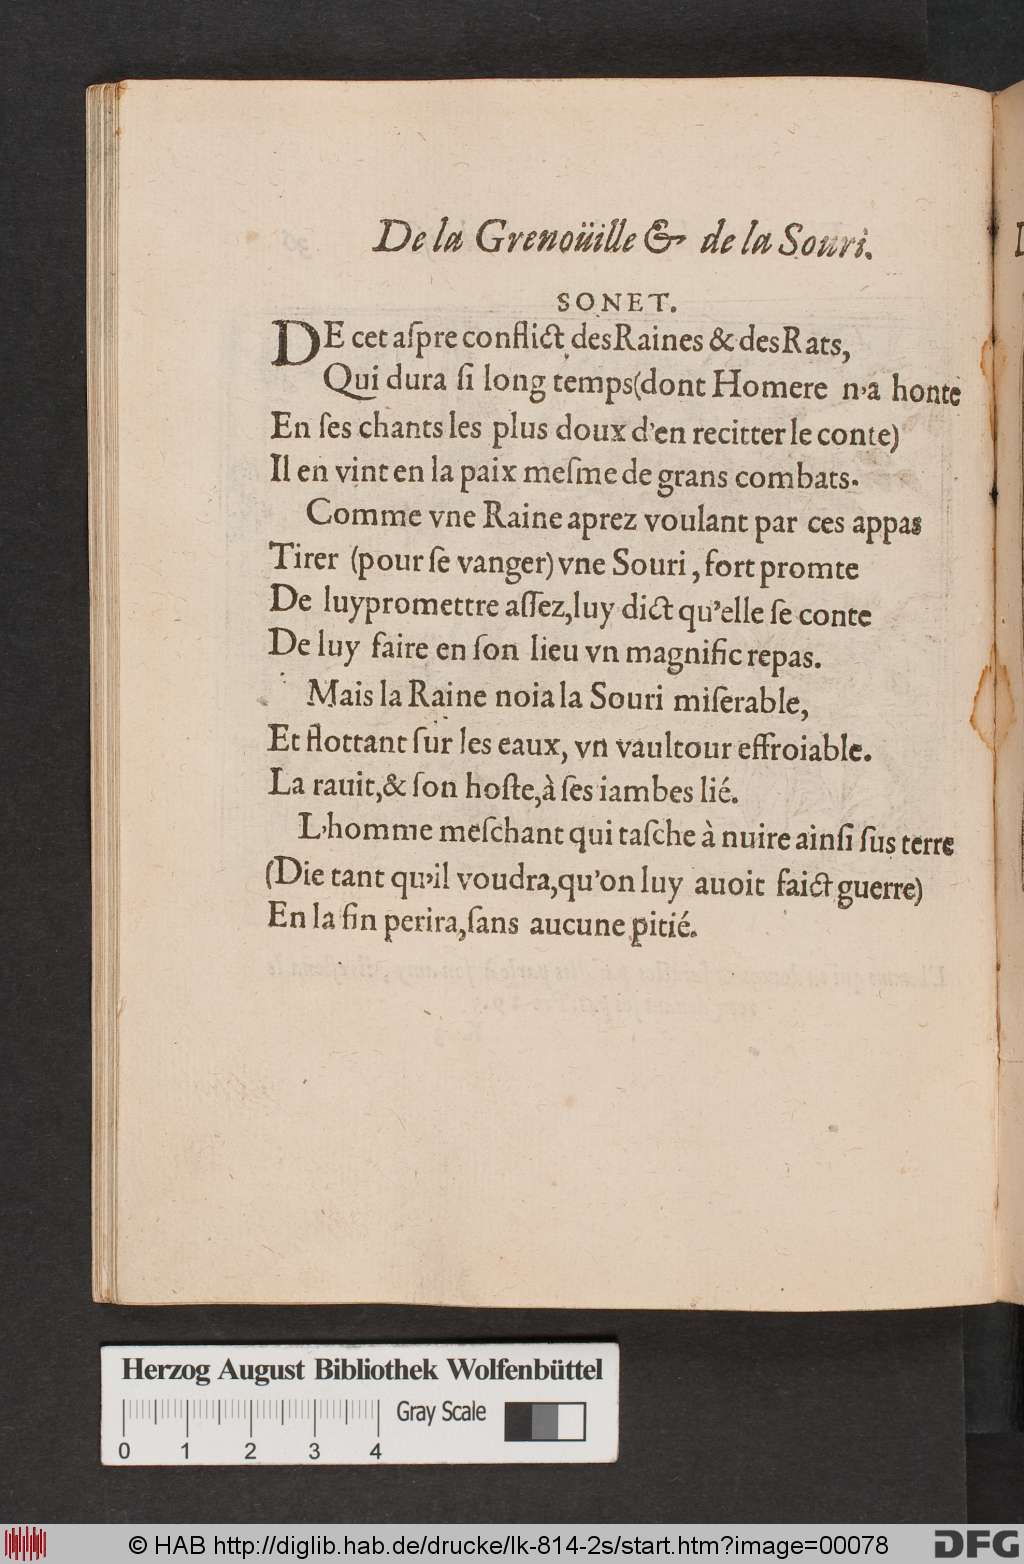 De la Grenoüille & de la Souri.
SONET.
DE cet aſpre conflict des Raines & des Rats,
Qui dura ſi long temps (dont Homere n'a honte
En ſes chants les plus doux d'en recitter le conte)
Il en vint en la paix meſme de grans combats.
Comme vne Raine aprez voulant par ces appas
Tirer (pour ſe vanger) vne Souri, fort promte
De luy promettre aſſez, luy dict qu'elle ſe conte
De luy faire en ſon lieu vn magnific repas.
Mais la Raine noia la Souri miſerable,
Et flottant ſur les eaux, vn vaultour effroiable.
La rauit, & ſon hoſte, à ſes iambes lié.
L'homme meſchant qui taſche à nuire ainſi ſus terre
(Die tant qu'il voudra, qu'on luy auoit faict guerre)
En la fin perira, ſans aucune pitié.
Herzog August Bibliothek Wolfenbüttel
Gray Scale
0 1 2 3 4
© HAB http://diglib.hab.de/drucke/lk-814-2s/start.htm?image=00078
DFG